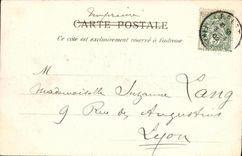 Imprimé
CARTE POSTALE
Ce côté est exclusivement réservé à l'adresse
M
Mademoiselle Suzanne Lang
9 Rue des Augustins
Lyon